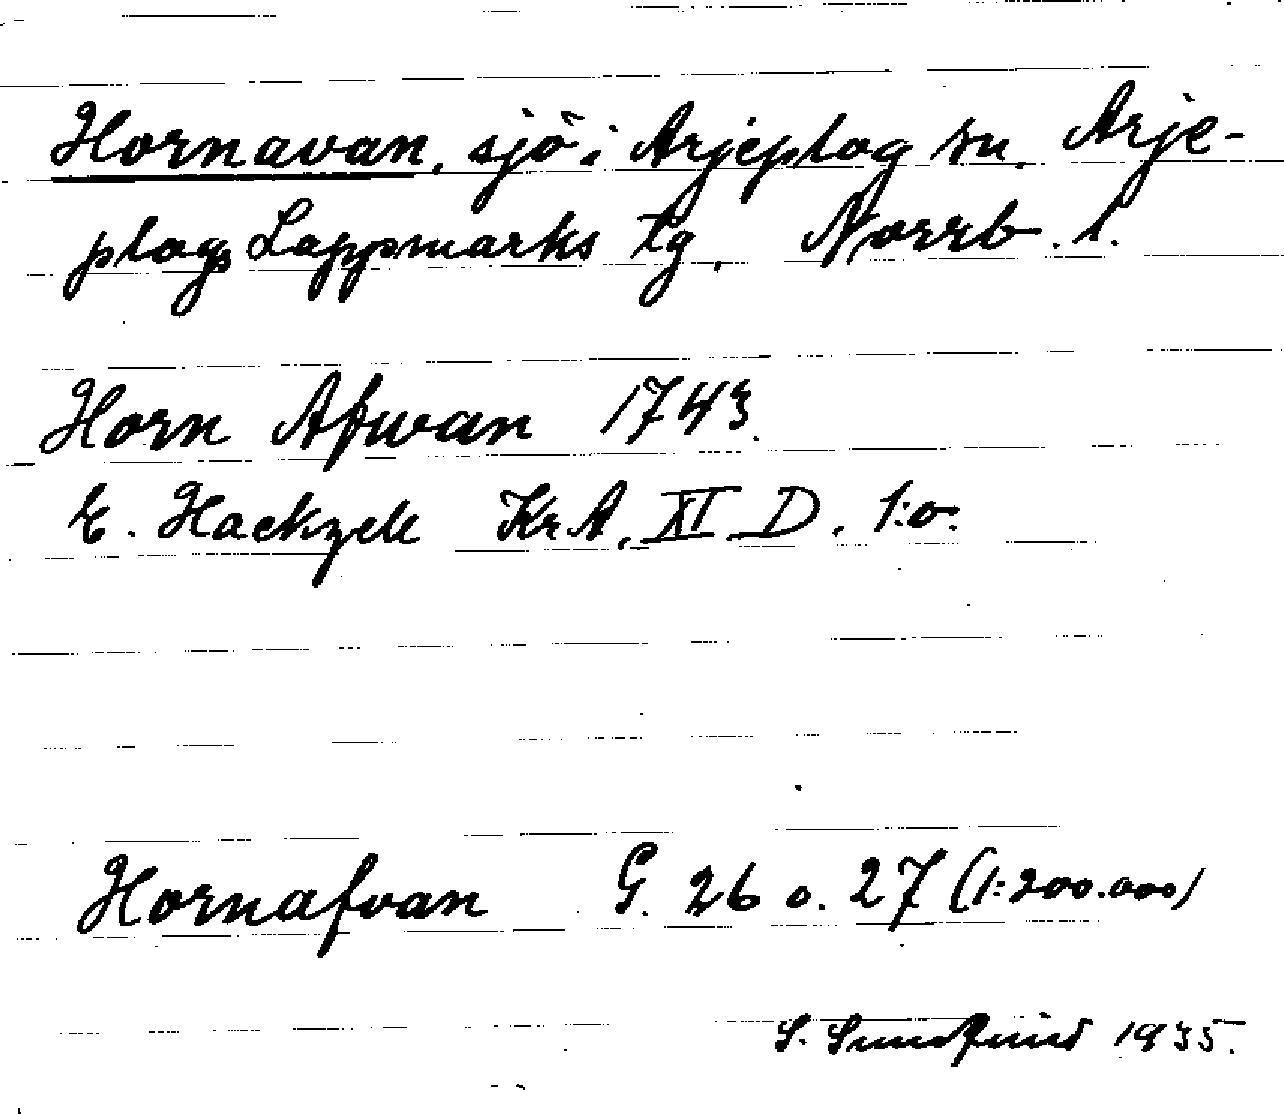 Hornavan, sjö i Arjeplog sn. Arje-
plogs Lappmarks tg, Norrb. l.
Horn Afwan 1743.
E. Hackzell Kr.A. XI D. 1:o.
Hornafvan G. 26 o. 27 (1:200.000)
S. 1935.